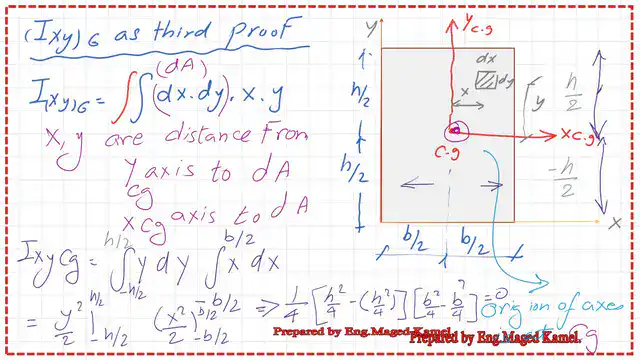 (Ixy)G as third proof
I(xy)G = ∫∫ (dx.dy).x.y
(dA)
x, y are distance From
y axis to dA
cg
xcg axis to dA
Ixycg = ∫_{-h/2}^{h/2} y dy ∫_{-b/2}^{b/2} x dx
= y²/2 |_{-h/2}^{h/2} (x²/2)_{-b/2}^{b/2} => 1/4 [h²/4 - (h²/4)] [b²/4 - b²/4] = 0
y
yc.g
dx
dy
x
y
h/2
h/2
h/2
-h/2
C.g
xc.g
x
b/2
b/2
origion of axes
Cg
Prepared by Eng.Maged Kamel.
Prepared by Eng.Maged Kamel.